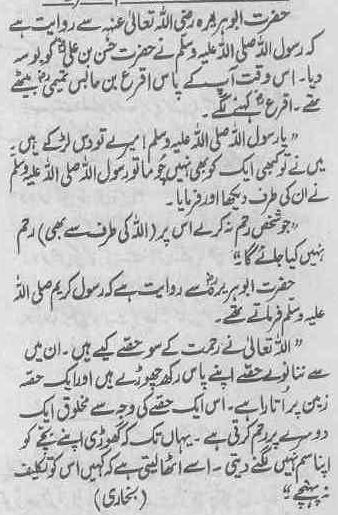 حضرت ابوہریرہ رضی اللہ تعالیٰ عنہ سے روایت ہے
کہ رسول اللہ صلی اللہ علیہ وسلم نے حضرت حسن بن علیؓ کو بوسہ
دیا۔ اس وقت آپ کے پاس اقرع بن حابس تمیمیؓ بیٹھے
تھے۔ اقرعؓ کہنے لگے۔
”یا رسول اللہ صلی اللہ علیہ وسلم! میرے تو دس لڑکے ہیں۔
میں نے تو کبھی ایک کو بھی نہیں چوما تو رسول اللہ صلی اللہ علیہ وسلم
نے ان کی طرف دیکھا اور فرمایا۔
”جو شخص رحم نہ کرے اس پر (اللہ کی طرف سے بھی) رحم
نہیں کیا جائے گا۔“
حضرت ابوہریرہؓ سے روایت ہے کہ رسول کریم صلی اللہ
علیہ وسلم فرماتے تھے۔
”اللہ تعالیٰ نے رحمت کے سو حصے کیے ہیں۔ ان میں
سے ننانوے حصے اپنے پاس رکھ چھوڑے ہیں اور ایک حصہ
زمین پر اُتارا ہے۔ اس ایک حصے کی وجہ سے مخلوق ایک
دوسرے پر رحم کرتی ہے۔ یہاں تک کہ گھوڑی اپنے بچے کو
اپنا سم نہیں لگنے دیتی۔ اسے اٹھا لیتی ہے کہ کہیں اس کو تکلیف
نہ پہنچے۔“ (بخاری)